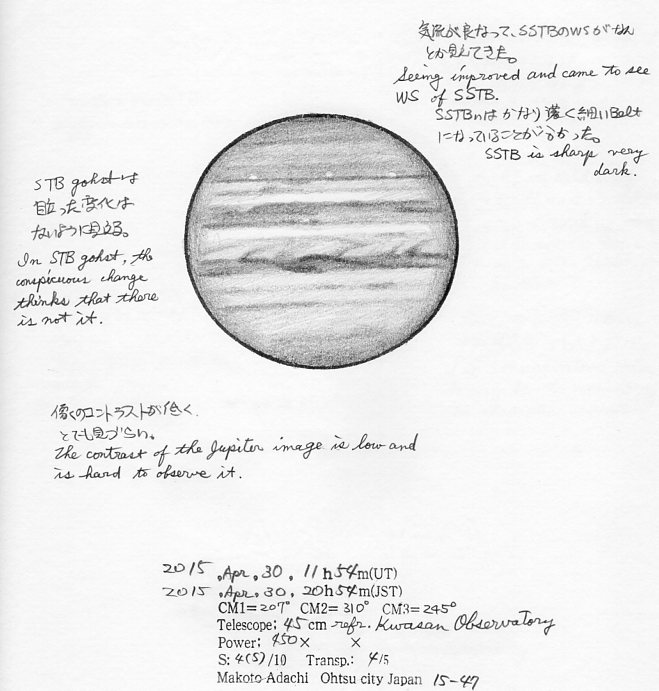 気流が良なって、SSTBのWSがなん
とか見えてきた。
Seeing improved and came to see
WS of SSTB.
SSTBnはかなり濃く細いBelt
になっていることがわかった。
SSTB is sharp very
dark.
STB gohstは
目立った変化は
ないように見える。
In STB gohst, the
conspicuous change
thinks that there
is not it.
像のコントラストが低く、
とても見づらい。
The contrast of the Jupiter image is low and
is hard to observe it.
2015 ,Apr, 30, 11h54m(UT)
2015 ,Apr, 30, 20h54m(JST)
CM1=207° CM2=310° CM3=245°
Telescope; 45cm refr. Kwasan Observatory
Power; 450× ×
S: 4(5)/10 Transp.: 4/5
Makoto Adachi Ohtsu city Japan 15-47